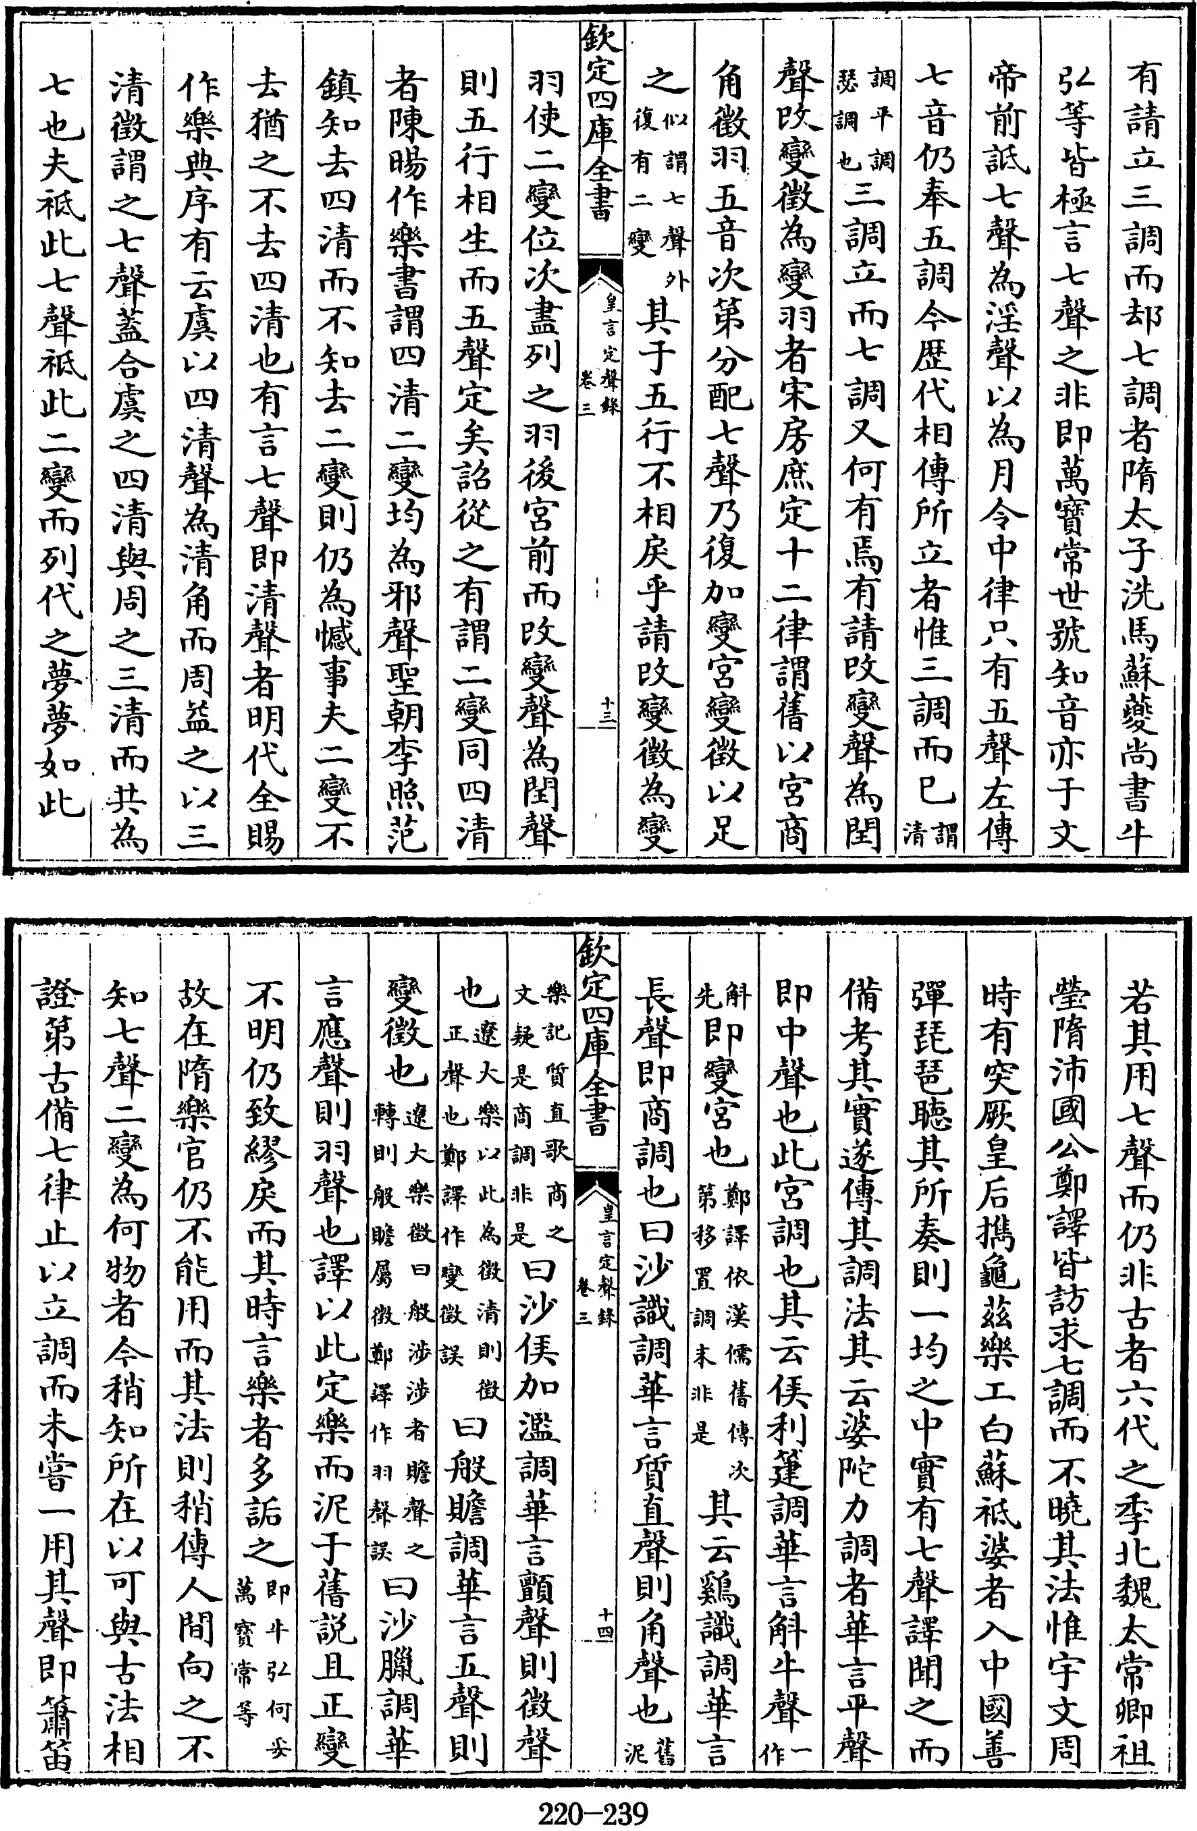 有請立三調而却七調者隋太子洗馬蘇夔尚書牛
弘等皆極言七聲之非即萬寶常世號知音亦于文
帝前詆七聲為淫聲以為月令中律只有五聲左傳
七音仍奉五調今歷代相傳所立者惟三調而已謂清
調平調瑟調也三調立而七調又何有焉有請改變聲為閏
聲改變徵為變羽者宋房庶定十二律謂舊以宮商
角徵羽五音次第分配七聲乃復加變宮變徵以足
之似謂七聲外復有二變其于五行不相戾乎請改變徵為變
欽定四庫全書
皇言定聲錄
卷三
十三
羽使二變位次盡列之羽後宮前而改變聲為閏聲
則五行相生而五聲定矣詔從之有謂二變同四清
者陳暘作樂書謂四清二變均為邪聲聖朝李照范
鎮知去四清而不知去二變則仍為憾事夫二變不
去猶之不去四清也有言七聲即清聲者明代全賜
作樂典序有云虞以四清聲為清角而周益之以三
清徵謂之七聲蓋合虞之四清與周之三清而共為
七也夫祗此七聲祗此二變而列代之夢夢如此
若其用七聲而仍非古者六代之季北魏太常卿祖
瑩隋沛國公鄭譯皆訪求七調而不曉其法惟宇文周
時有突厥皇后攜龜茲樂工白蘇祗婆者入中國善
彈琵琶聽其所奏則一均之中實有七聲譯聞之而
備考其實遂傳其調法其云婆陀力調者華言平聲
即中聲也此宮調也其云俟利箑調華言斛牛聲一作
斛先即變宮也鄭譯依漢儒舊傳次第移置調末非是其云鷄識調華言
長聲即商調也曰沙識調華言質直聲則角聲也舊泥
欽定四庫全書
皇言定聲錄
卷三
十四
樂記質直歌商之文疑是商調非是曰沙俟加濫調華言顫聲則徵聲
也遼大樂以此為徵清則徵正聲也鄭譯作變徵誤曰般贍調華言五聲則
變徵也遼大樂徵曰般涉涉者贍聲之轉則般贍屬徵鄭譯作羽聲誤曰沙臘調華
言應聲則羽聲也譯以此定樂而泥于舊說且正變
不明仍致繆戾而其時言樂者多詬之即牛弘何妥萬寶常等
故在隋樂官仍不能用而其法則稍傳人間向之不
知七聲二變為何物者今稍知所在以可與古法相
證第古備七律止以立調而未嘗一用其聲即簫笛
220-239